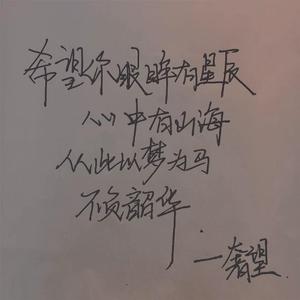 希望你眼眸有星辰
心中有山海
从此以梦为马
不负韶华
一奢望